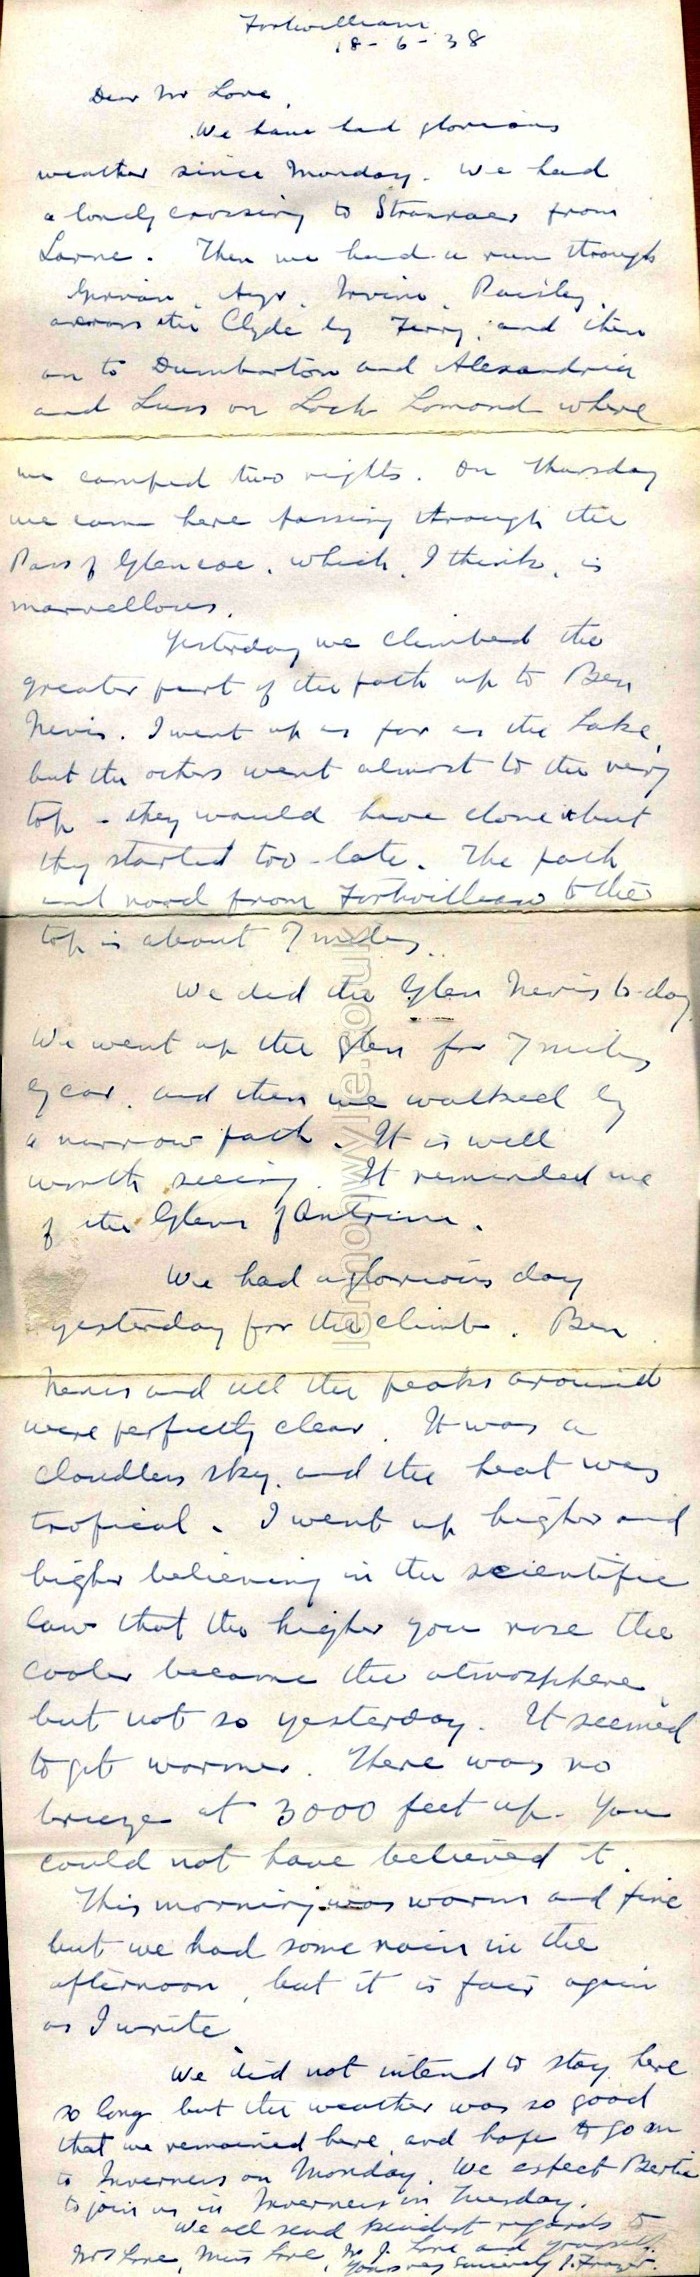 Fortwilliam
18-6-38
Dear Mr Love,
We have had glorious
weather since Monday. We had
a lovely crossing to Stranraer from
Larne. Then we had a run through
Girvan, Ayr, Irvine, Paisley,
across the Clyde by Ferry, and then
on to Dumbarton and Alexandria
and Luss on Loch Lomond where
we camped two nights. On Thursday
we came here passing through the
Pass of Glencoe, which, I think, is
marvellous.
Yesterday we climbed the
greater part of the path up to Ben
Nevis. I went up as far as the Lake,
but the others went almost to the very
top - they would have done it but
they started too late. The path
and road from Fortwilliam to the
top is about 7 miles.
We did the Glen Nevis to-day
We went up the glen for 7 miles
by car, and then we walked by
a narrow path. It is well
worth seeing. It reminded me
of the Glens of Antrim.
We had a glorious day
yesterday for the climb. Ben
Nevis and all the peaks around
were perfectly clear. It was a
cloudless sky, and the heat was
tropical. I went up higher and
higher believing in the scientific
law that the higher you rose the
cooler became the atmosphere,
but not so yesterday. It seemed
to get warmer. There was no
breeze at 3000 feet up. You
could not have believed it.
This morning was warm and fine
but we had some rain in the
afternoon, but it is fair again
as I write.
We did not intend to stay here
so long but the weather was so good
that we remained here, and hope to go on
to Inverness on Monday. We expect Bertie
to join us in Inverness on Tuesday.
We all send kindest regards to
Mrs Love, Miss Love, Mr J. Love and yourself.
Yours very sincerely J. Frazer.
lennonwylie.co.uk